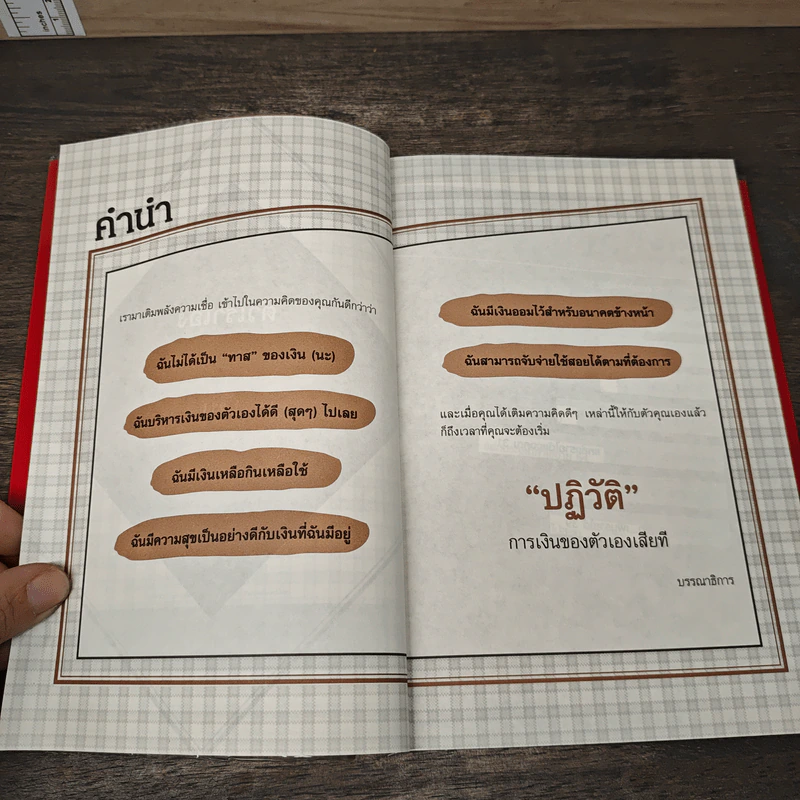 คำนำ
เรามาเติมพลังความเชื่อ เข้าไปในความคิดของคุณกันดีกว่าว่า
ฉันไม่ได้เป็น “ทาส” ของเงิน (นะ)
ฉันบริหารเงินของตัวเองได้ดี (สุดๆ) ไปเลย
ฉันมีเงินเหลือกินเหลือใช้
ฉันมีความสุขเป็นอย่างดีกับเงินที่ฉันมีอยู่
ฉันมีเงินออมไว้สำหรับอนาคตข้างหน้า
ฉันสามารถจับจ่ายใช้สอยได้ตามที่ต้องการ
และเมื่อคุณได้เติมความคิดดีๆ เหล่านี้ให้กับตัวคุณเองแล้ว
ก็ถึงเวลาที่คุณจะต้องเริ่ม
“ปฏิวัติ”
การเงินของตัวเองเสียที
บรรณาธิการ